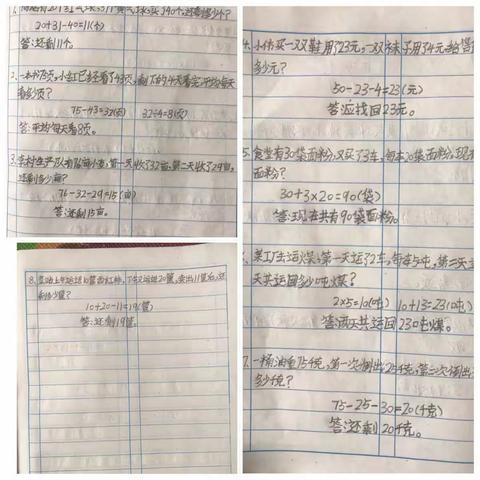 20+31-40=11(个)
答:还剩11个。
2.一本书75页,小红已经看了43页,剩下的4天看完,平均每天
看多少页?
75-43=32(页) 32÷4=8(页)
答:平均每天看8页。
第一天收了32亩,第二天收了29亩,
还剩多少亩?
76-32-29=15(亩)
答:还剩15亩。
8. 下午又运进20筐,卖出11筐后,还
剩多少筐?
10+20-11=19(筐)
答:还剩19筐。
买一双鞋用了23元,一双袜子用了4元,
多少元?
50-23-4=23(元)
答:应找回23元。
5.食堂有30袋面粉,又买了3车,每车20袋面粉,现在
面粉?
30+3×20=90(袋)
答:现在共有90袋面粉。
某工厂去运煤,第一天运了2车,每车5吨,第二天
天共运回多少吨煤?
2×5=10(吨) 10+13=23(吨)
答:两天共运回23吨煤。
7.一桶油重75千克,第一次倒出25千克,第二次倒出
多少千克?
75-25-30=20(千克)
答:还剩20千克。